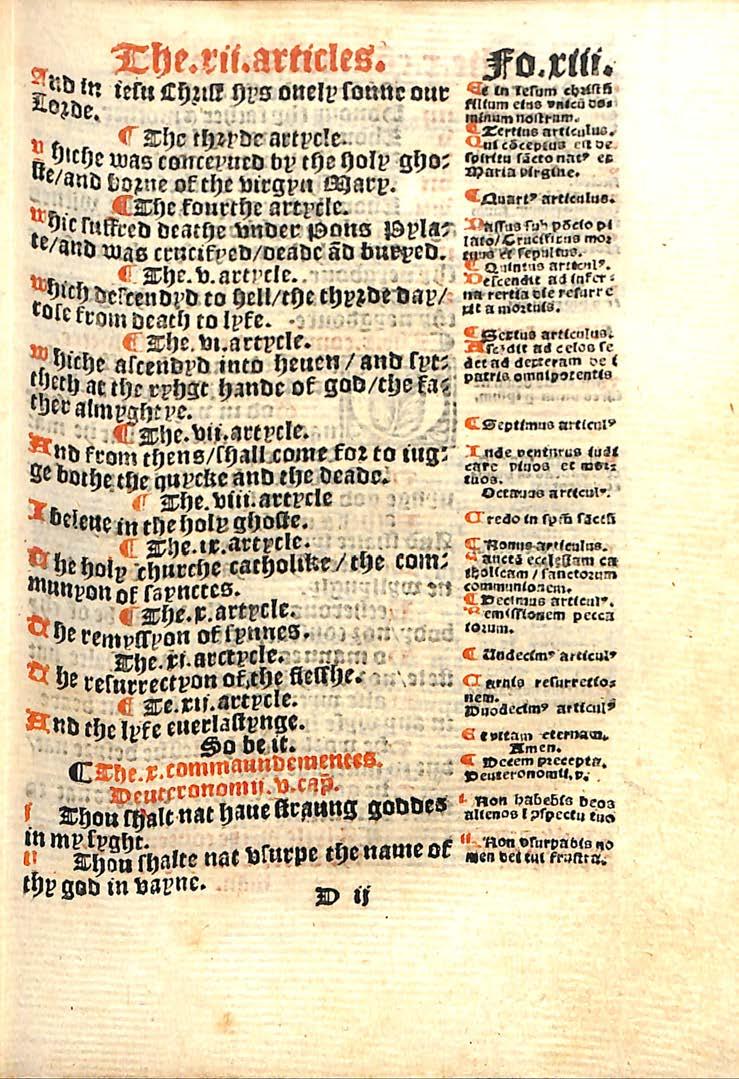 The.xii.articles.
Fo.xiii.
And in iesu Christ hys onely sonne our
Lorde.
¶ The thryde artycle.
whiche was conceyued by the holy gho⸗
ste/and borne of the virgyn Mary.
¶ The fourthe artycle.
whic suffred deathe vnder Pons Pyla⸗
te/and was crucifyed/deade ãd buryed.
¶ The.v.artycle.
which descendyd to hell/the thyrde day/
rose from death to lyfe.
¶ The.vi.artycle.
whiche ascendyd into heuen/and syt⸗
theth at the ryhgt hande of god/the fa⸗
ther almyghtye.
¶ The.vii.artycle.
And from thens/shall come for to iug⸗
ge bothe the quycke and the deade.
¶ The.viii.artycle
I beleue in the holy ghoste.
¶ The.ix.artycle.
The holy churche catholike/the com⸗
munyon of saynctes.
¶ The.x.artycle.
The remyssyon of synnes.
The.xi.arctycle.
The resurrectyon of,the flesshe.
¶ Te.xij.artycle.
And the lyfe euerlastynge.
So be it.
¶ The.x.commaundementes.
Deuteronomii.v.cap̃.
i Thou shalt nat haue straung goddes
in my syght.
ii Thou shalte nat vsurpe the name of
thy god in vayne.
D ij
Et in Iesum christũ
filium eius vnicũ do⸗
minum nostrum.
¶ Tertius articulus.
Qui cõceptus est de
spiritu sãcto natꝰ ex
Maria virgine.
¶ Quartꝰ articulus.
Passus sub põcio pi
lato/Crucifixus mor
tuus et sepultus.
¶ Quintus articulꝰ.
Descendit ad infer⸗
na tertia die resurre
xit a mortuis.
¶ Sextus articulus.
Ascẽdit ad celos se
det ad dexteram dei
patris omnipotentis
¶ Septimus articulꝰ
Inde venturus iudi
care viuos et mor⸗
tuos.
Octauus articulꝰ.
Credo in spm̃ sãctũ
¶ Nonus articulus.
Sanctã ecclesiam ca
tholicam/sanctorum
communionem.
¶ Decimus articulꝰ.
Remissionem pecca
torum.
¶ Undecimꝰ articulꝰ
Carnis resurrectio⸗
nem.
Duodecimꝰ articulꝰ
Et vitam eternam.
Amen.
¶ Decem precepta.
Deuteronomii.v.
i. Non habebis deos
alienos ĩ cõspectu tuo
ii. Non vsurpabis no
men dei tui frustra.